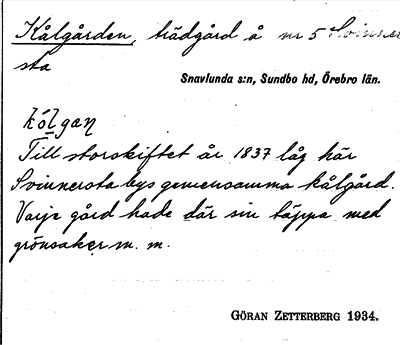 Kålgården, trädgård å nr 5 Svinner
sta
Snavlunda s:n, Sundbo hd, Örebro län.
kólgan
Till storskiftet år 1837 låg här
Svinnersta bys gemensamma kålgård.
Varje gård hade där sin täppa med
grönsaker m. m.
GÖRAN ZETTERBERG 1934.